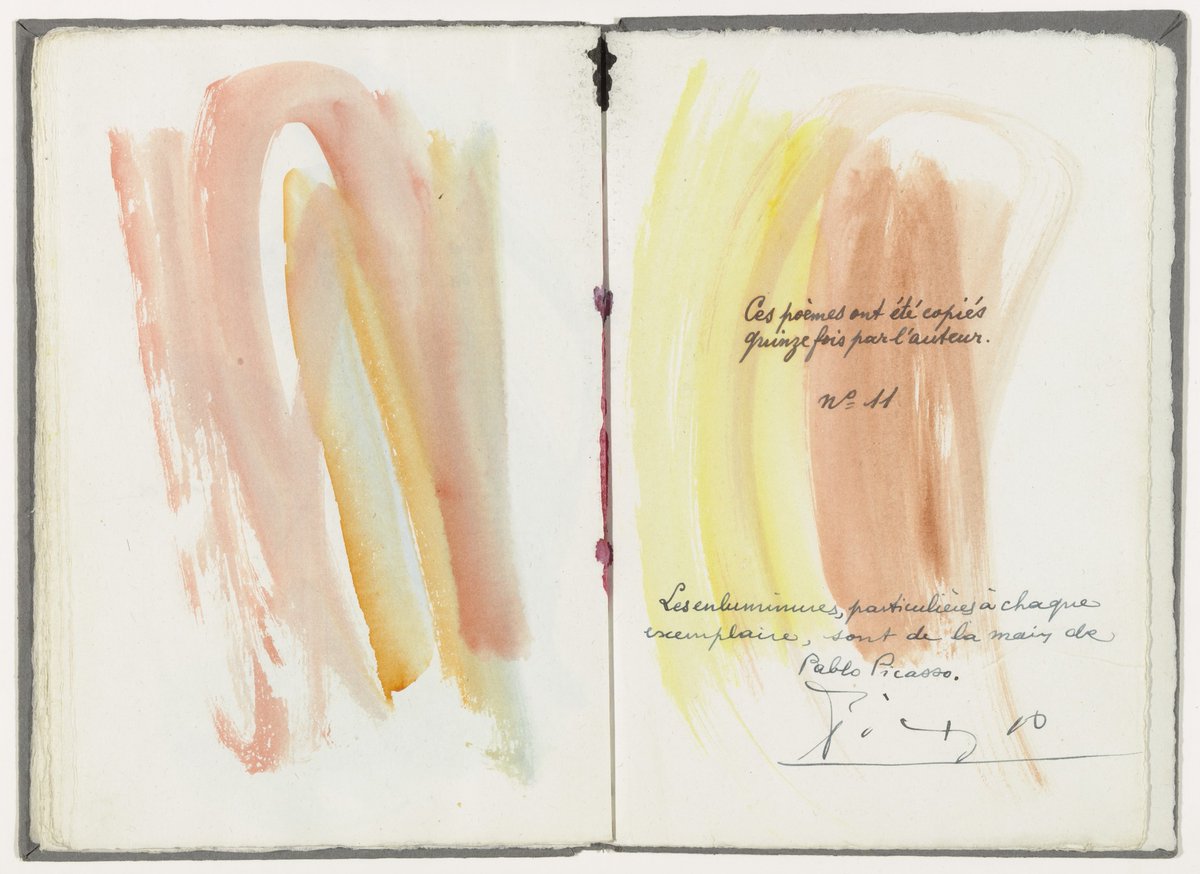 Ces poèmes ont été copiés
quinze fois par l'auteur.
Nº 11
Les enluminures, particulières à chaque
exemplaire, sont de la main de
Pablo Picasso.
Picasso